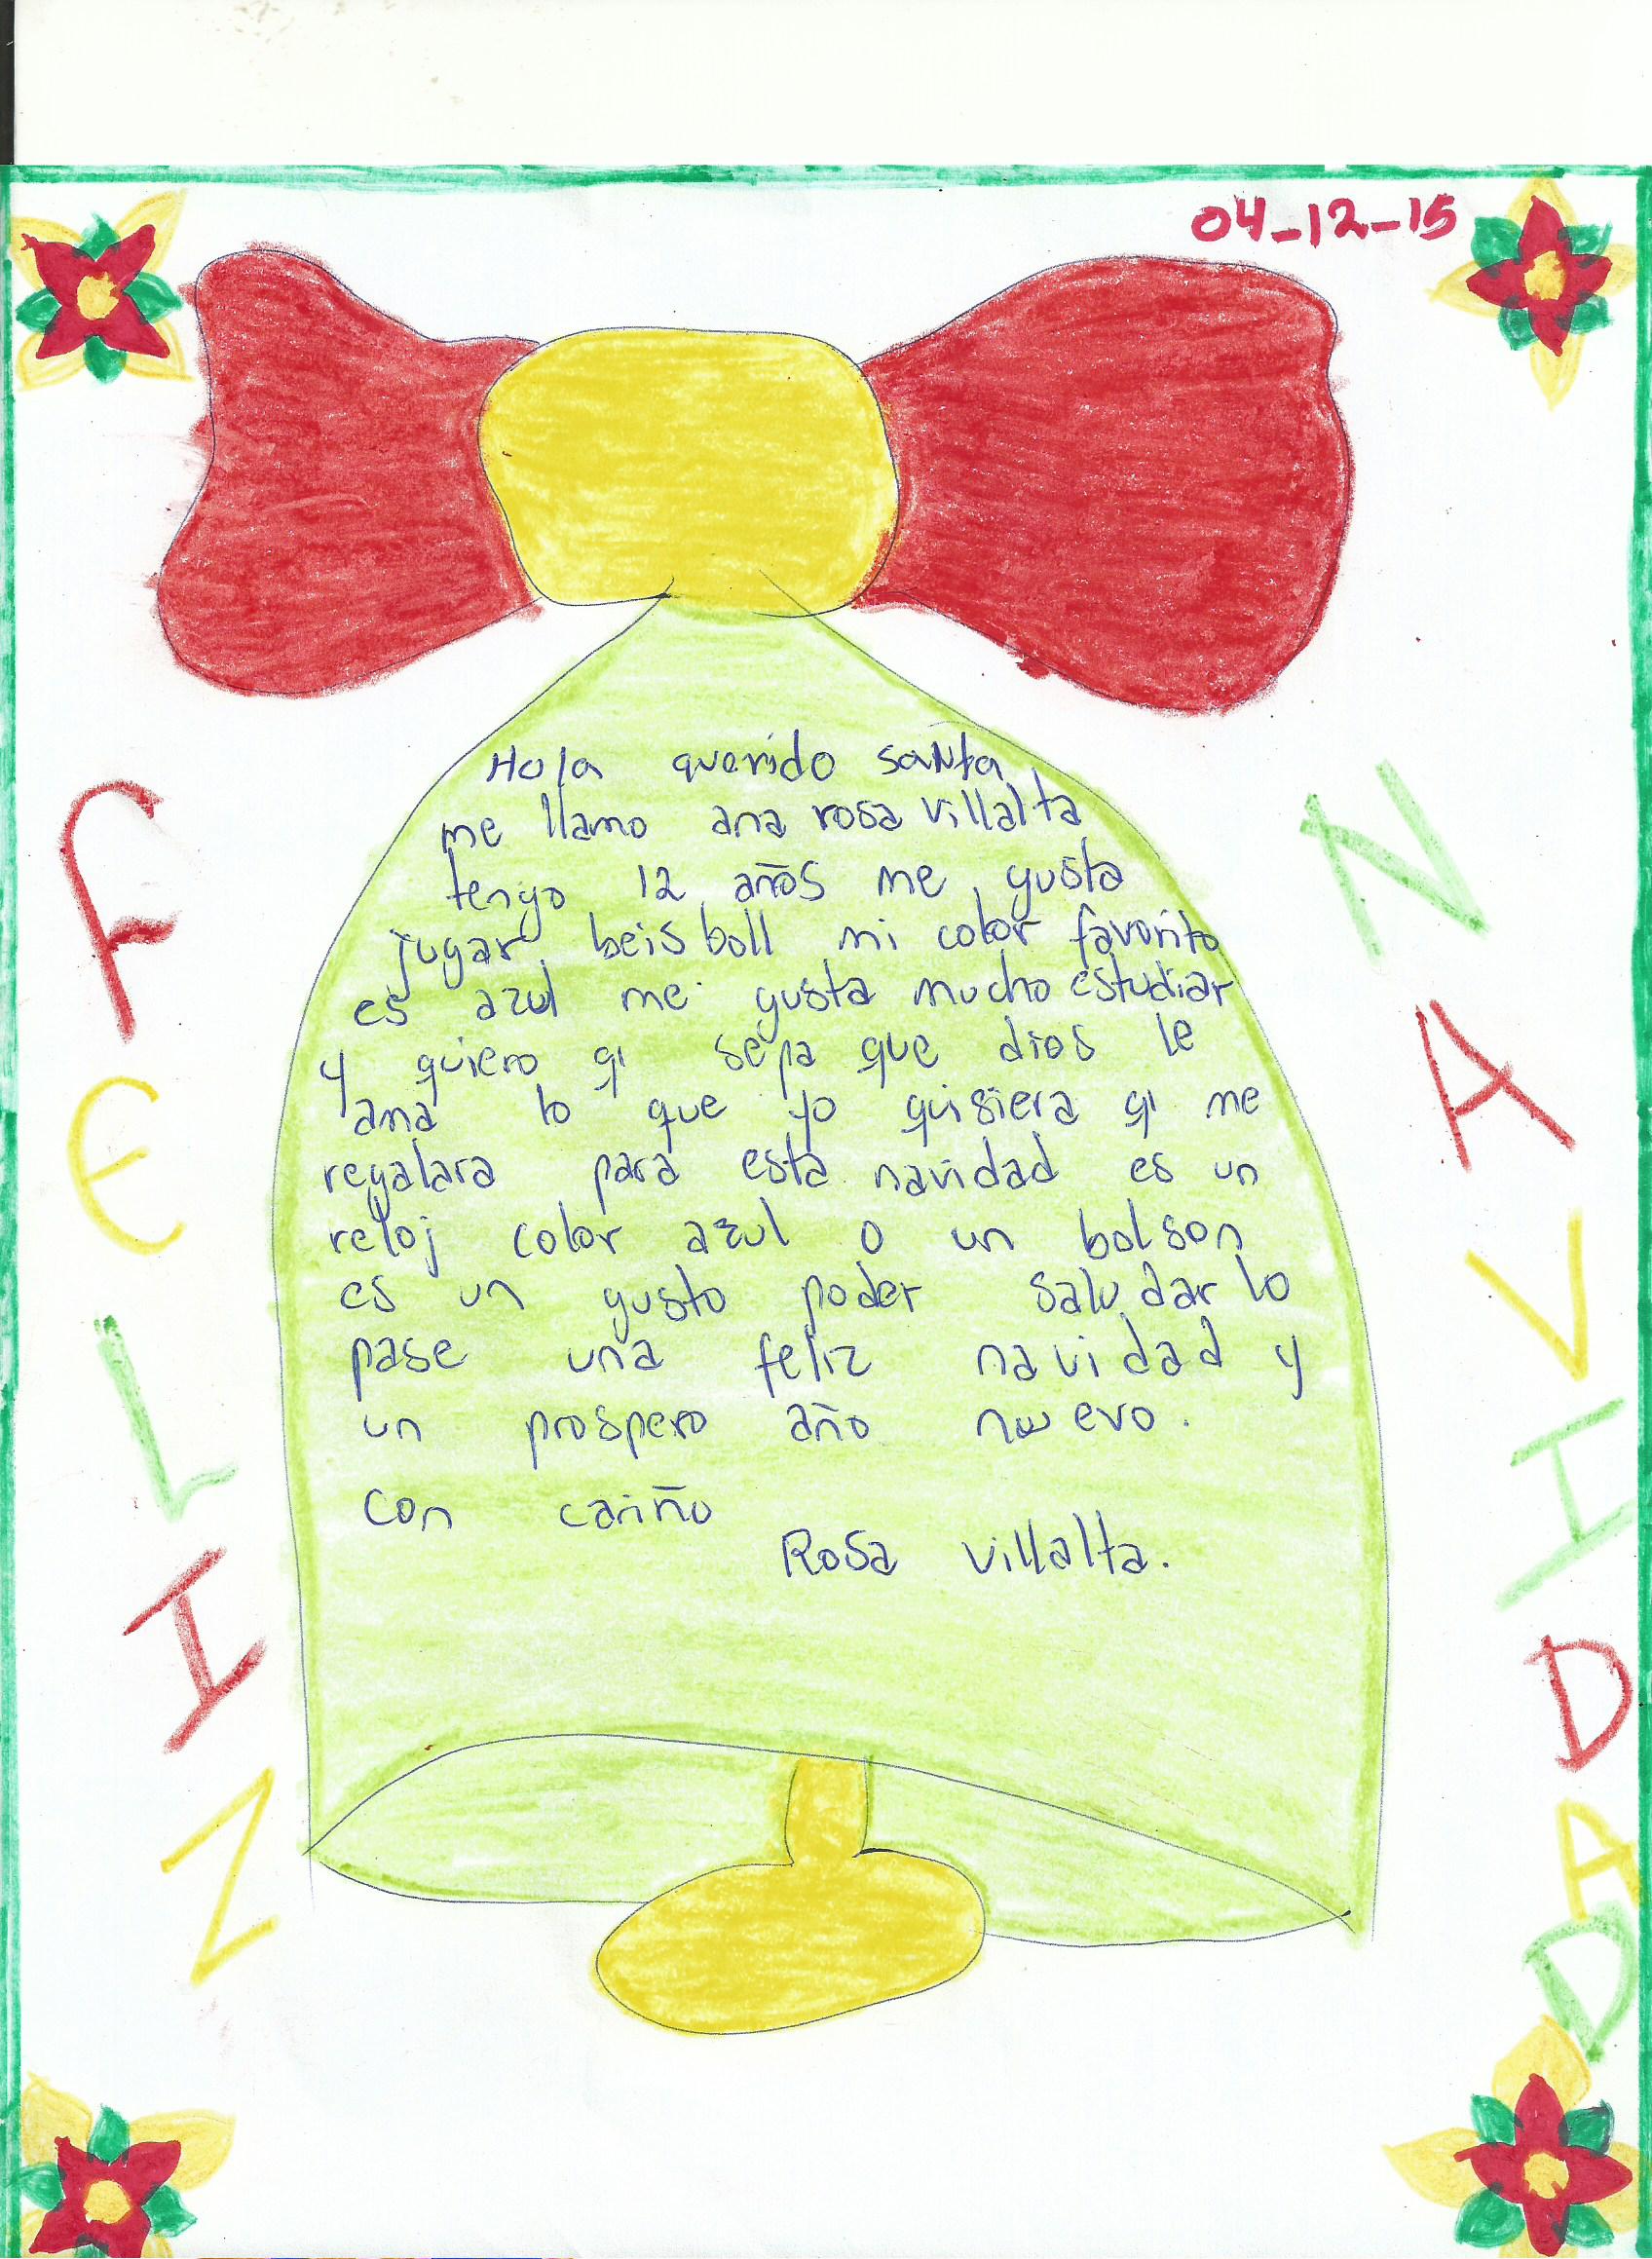 04-12-15
Hola querido santa
me llamo ana rosa villalta
tengo 12 años me gusta
jugar beisboll mi color favorito
es azul me gusta mucho estudiar
y quiero qi sepa que dios le
ama lo que yo quisiera qi me
regalara para esta navidad es un
reloj color azul o un bolson
es un gusto poder saludarlo
pase una feliz navidad y
un prospero año nuevo.
con cariño
Rosa villalta.
FELIZ
NAVIDAD